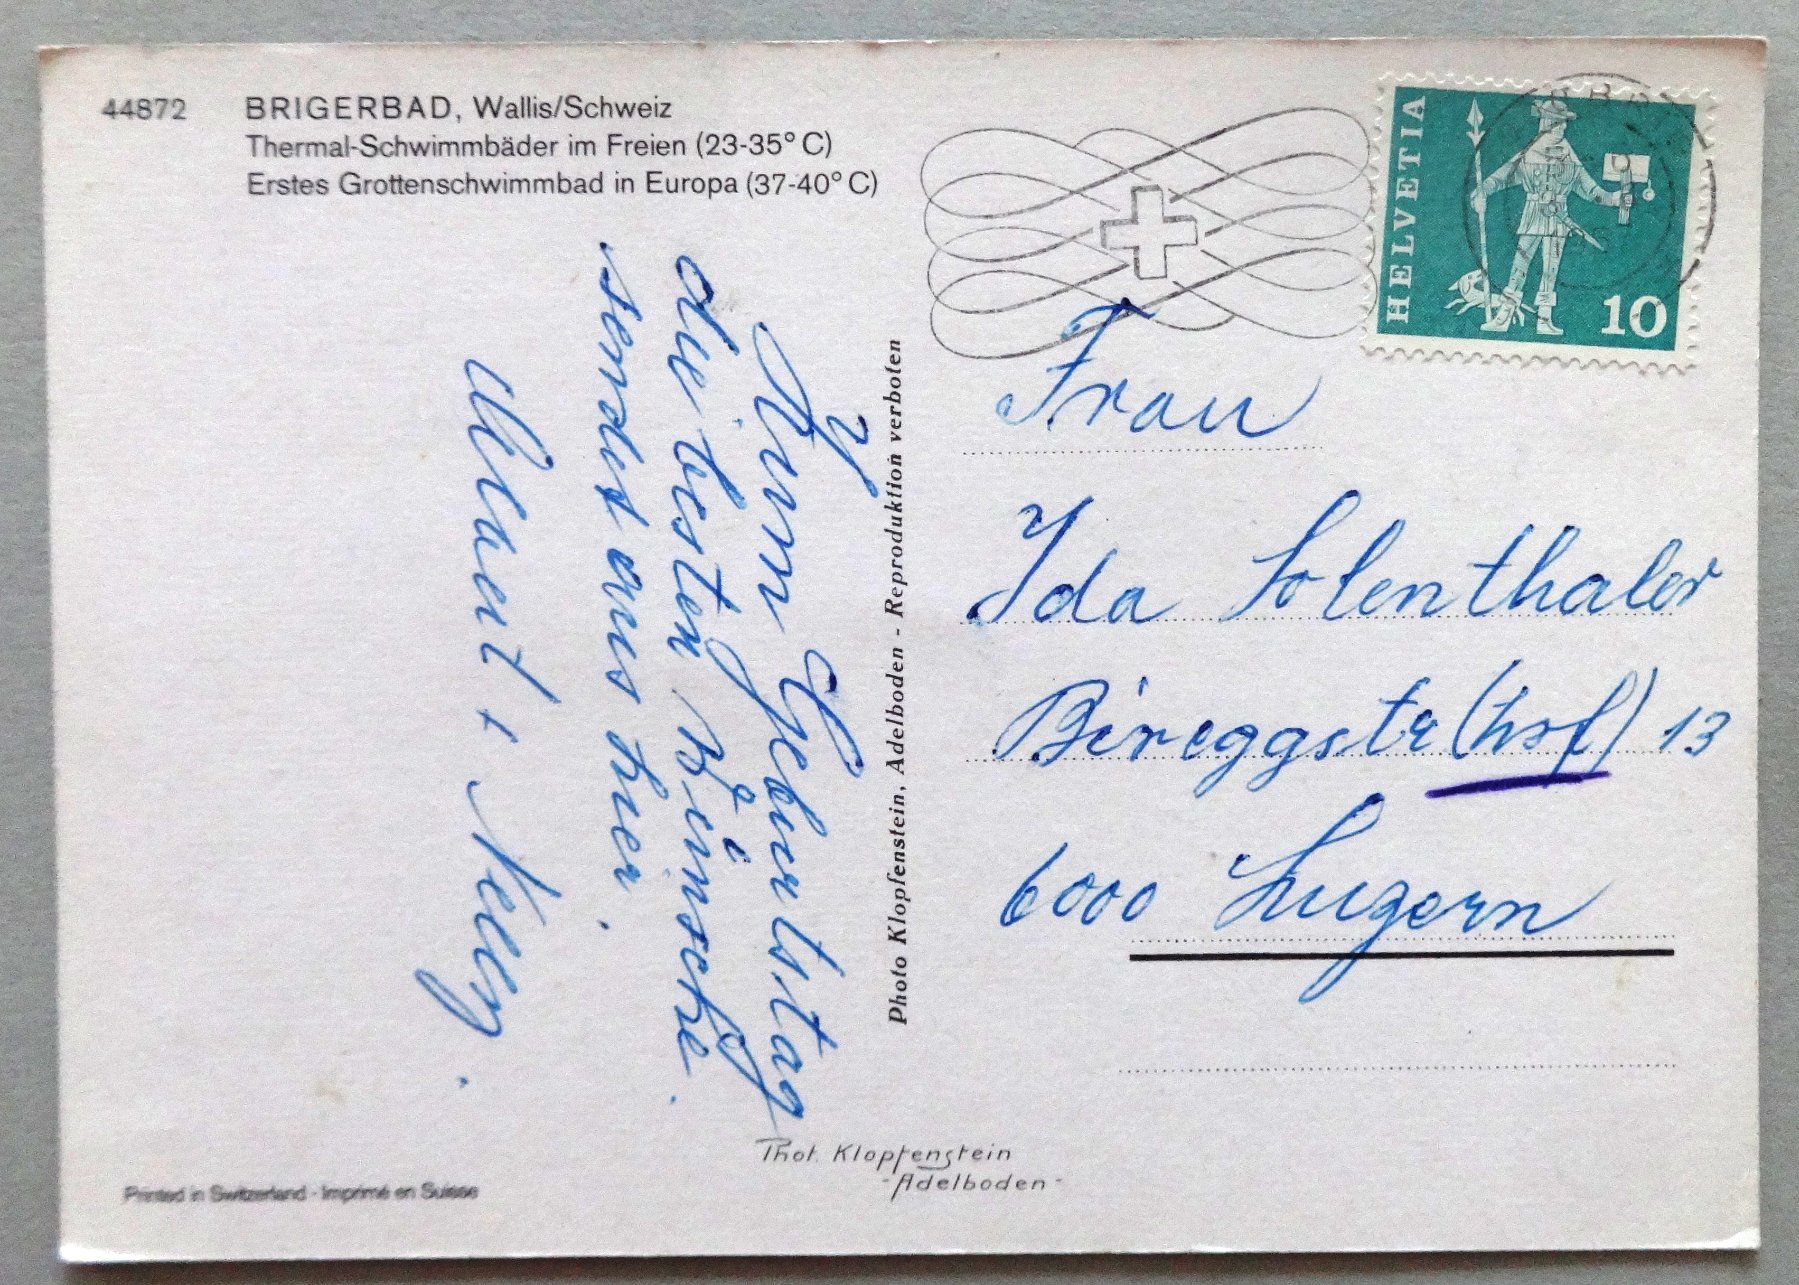 44872 BRIGERBAD, Wallis/Schweiz
Thermal-Schwimmbäder im Freien (23-35° C)
Erstes Grottenschwimmbad in Europa (37-40° C)
HELVETIA
10
Zum Geburtstag
die besten Wünsche
sendet aus hier.
+ Nelly.
Photo Klopfenstein, Adelboden - Reproduktion verboten
Frau
Ida Solenthaler
Bireggstr (hof) 13
6000 Luzern
Phot. Klopfenstein
- Adelboden -
Printed in Switzerland - Imprimé en Suisse